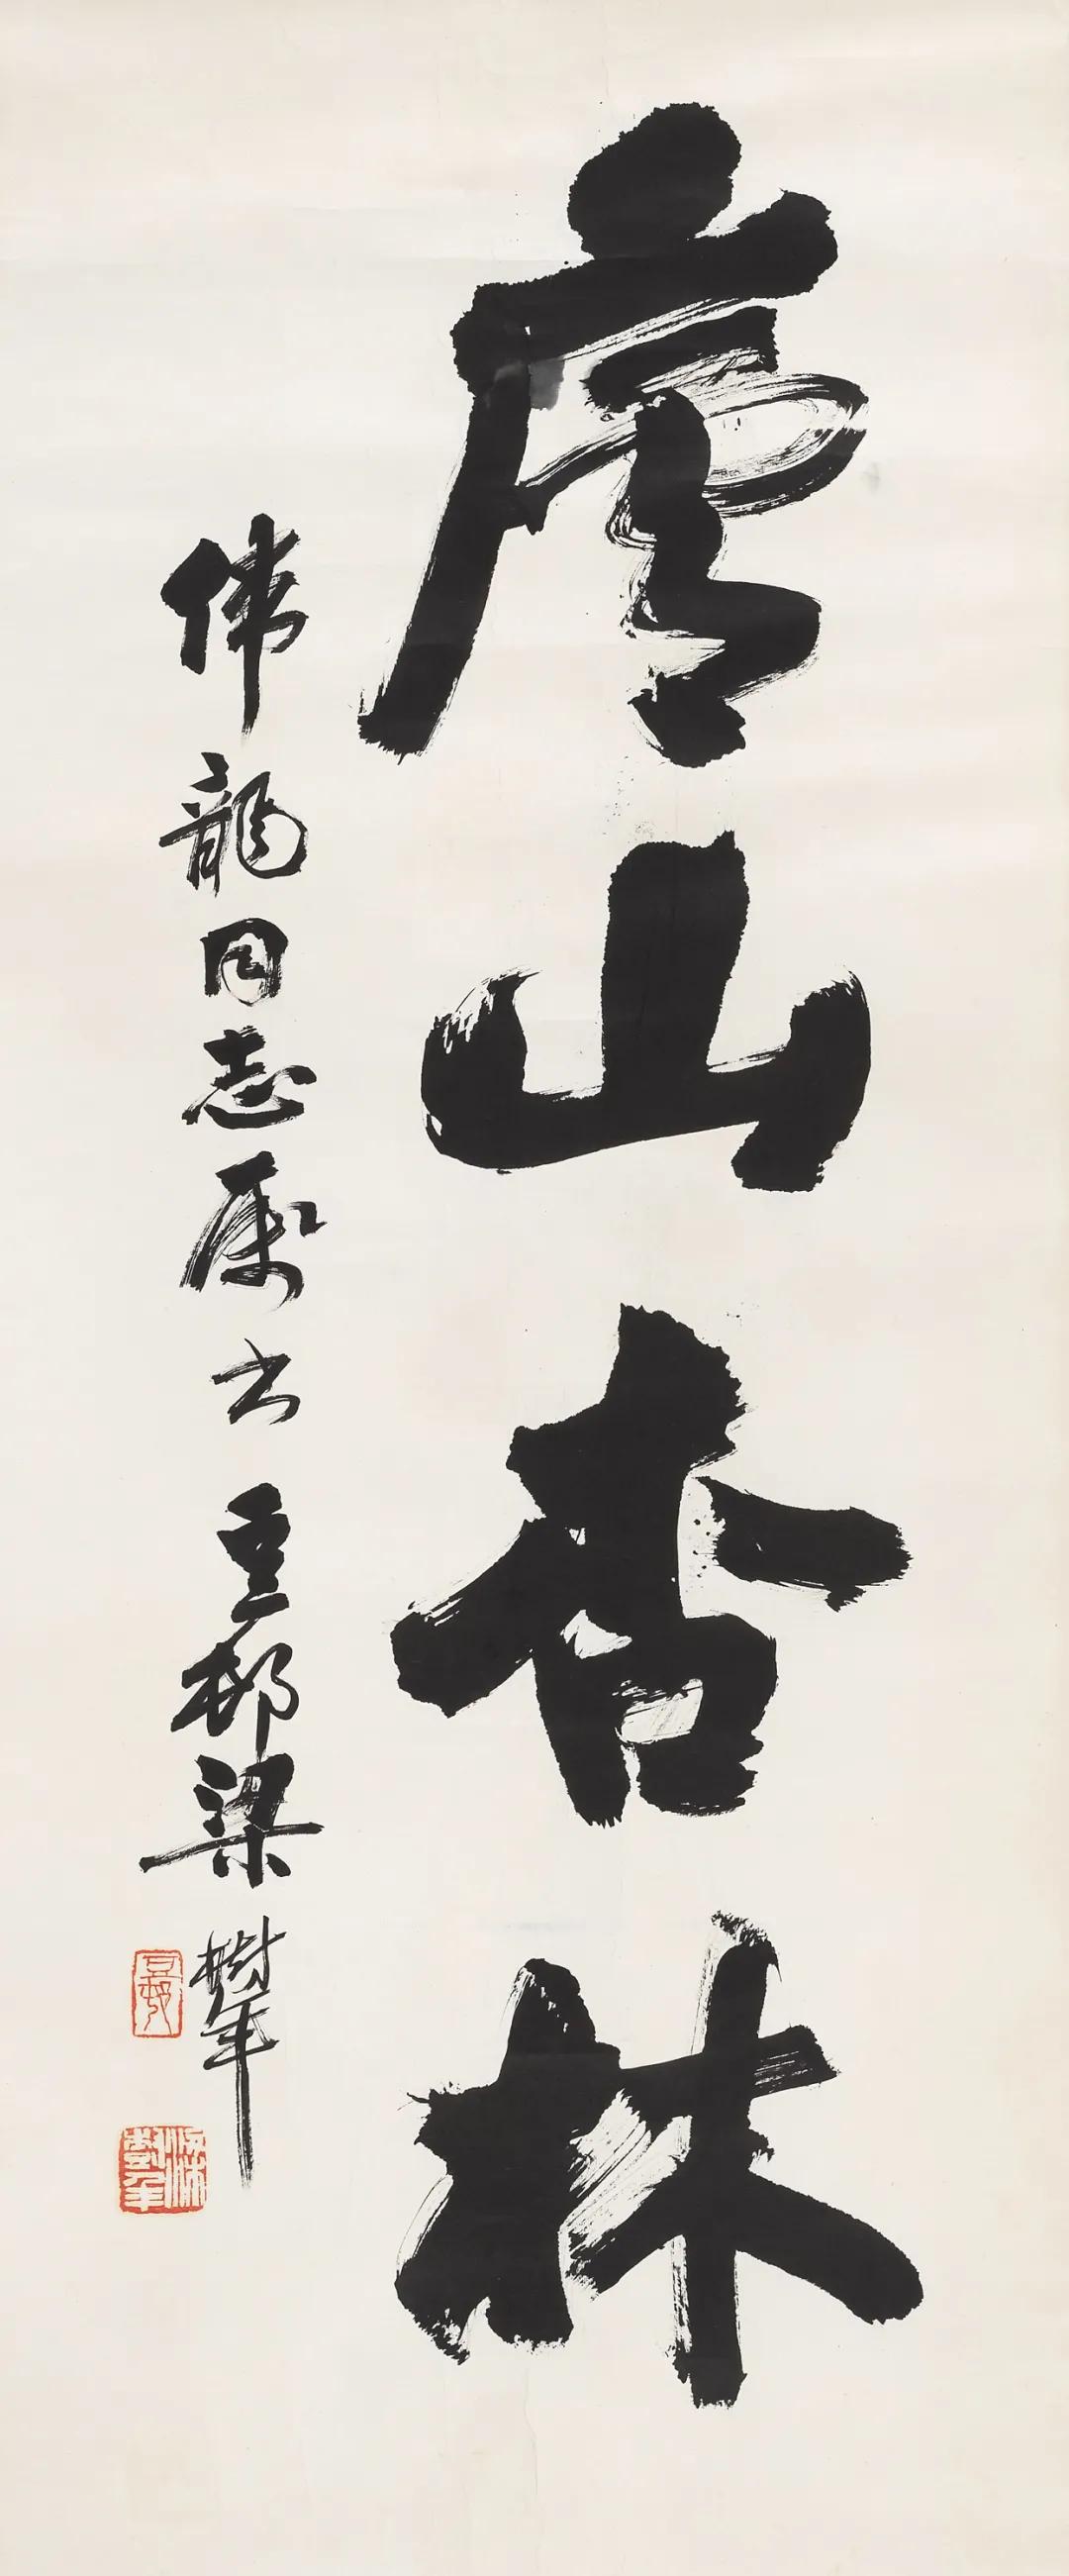 廬山杏林
偉龍同志屬書 豆邨梁樹年
梁樹年